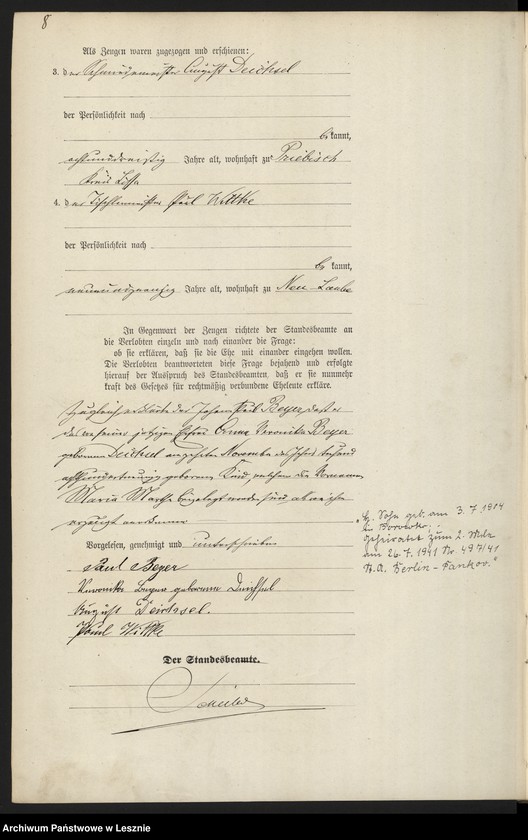 8
Als Zeugen waren zugezogen und erschienen:
3. der Schmiedemeister August Deichsel
der Persönlichkeit nach
be kannt,
achtunddreißig Jahre alt, wohnhaft zu Priebisch
Kreis Lissa
4. der Tischlermeister Paul Wittke
der Persönlichkeit nach
be kannt,
neunundzwanzig Jahre alt, wohnhaft zu Neu-Laube
In Gegenwart der Zeugen richtete der Standesbeamte an
die Verlobten einzeln und nach einander die Frage:
ob sie erklären, daß sie die Ehe mit einander eingehen wollen.
Die Verlobten beantworteten diese Frage bejahend und erfolgte
hierauf der Ausspruch des Standesbeamten, daß er sie nunmehr
kraft des Gesetzes für rechtmäßig verbundene Eheleute erkläre.
Zugleich erklärte der Paul Beyer, daß er
das von seiner jetzigen Ehefrau Anna Veronika Beyer
geborenen Deichsel November des Jahres tausend
geborene Kind, welchem die Vornamen
Maria Martha beigelegt worden sind, als
erzeugt anerkenne
Vorgelesen, genehmigt und unterschrieben
Paul Beyer
Veronika Beyer geborene Deichsel
August Deichsel.
Paul Wittke
Der Standesbeamte.
Sohn geb. am 3.7.1914
in
geheiratet zum 2. Male
am 26.7.1941 Nr. 497/41
St.A. Berlin-Pankow."
Archiwum Państwowe w Lesznie